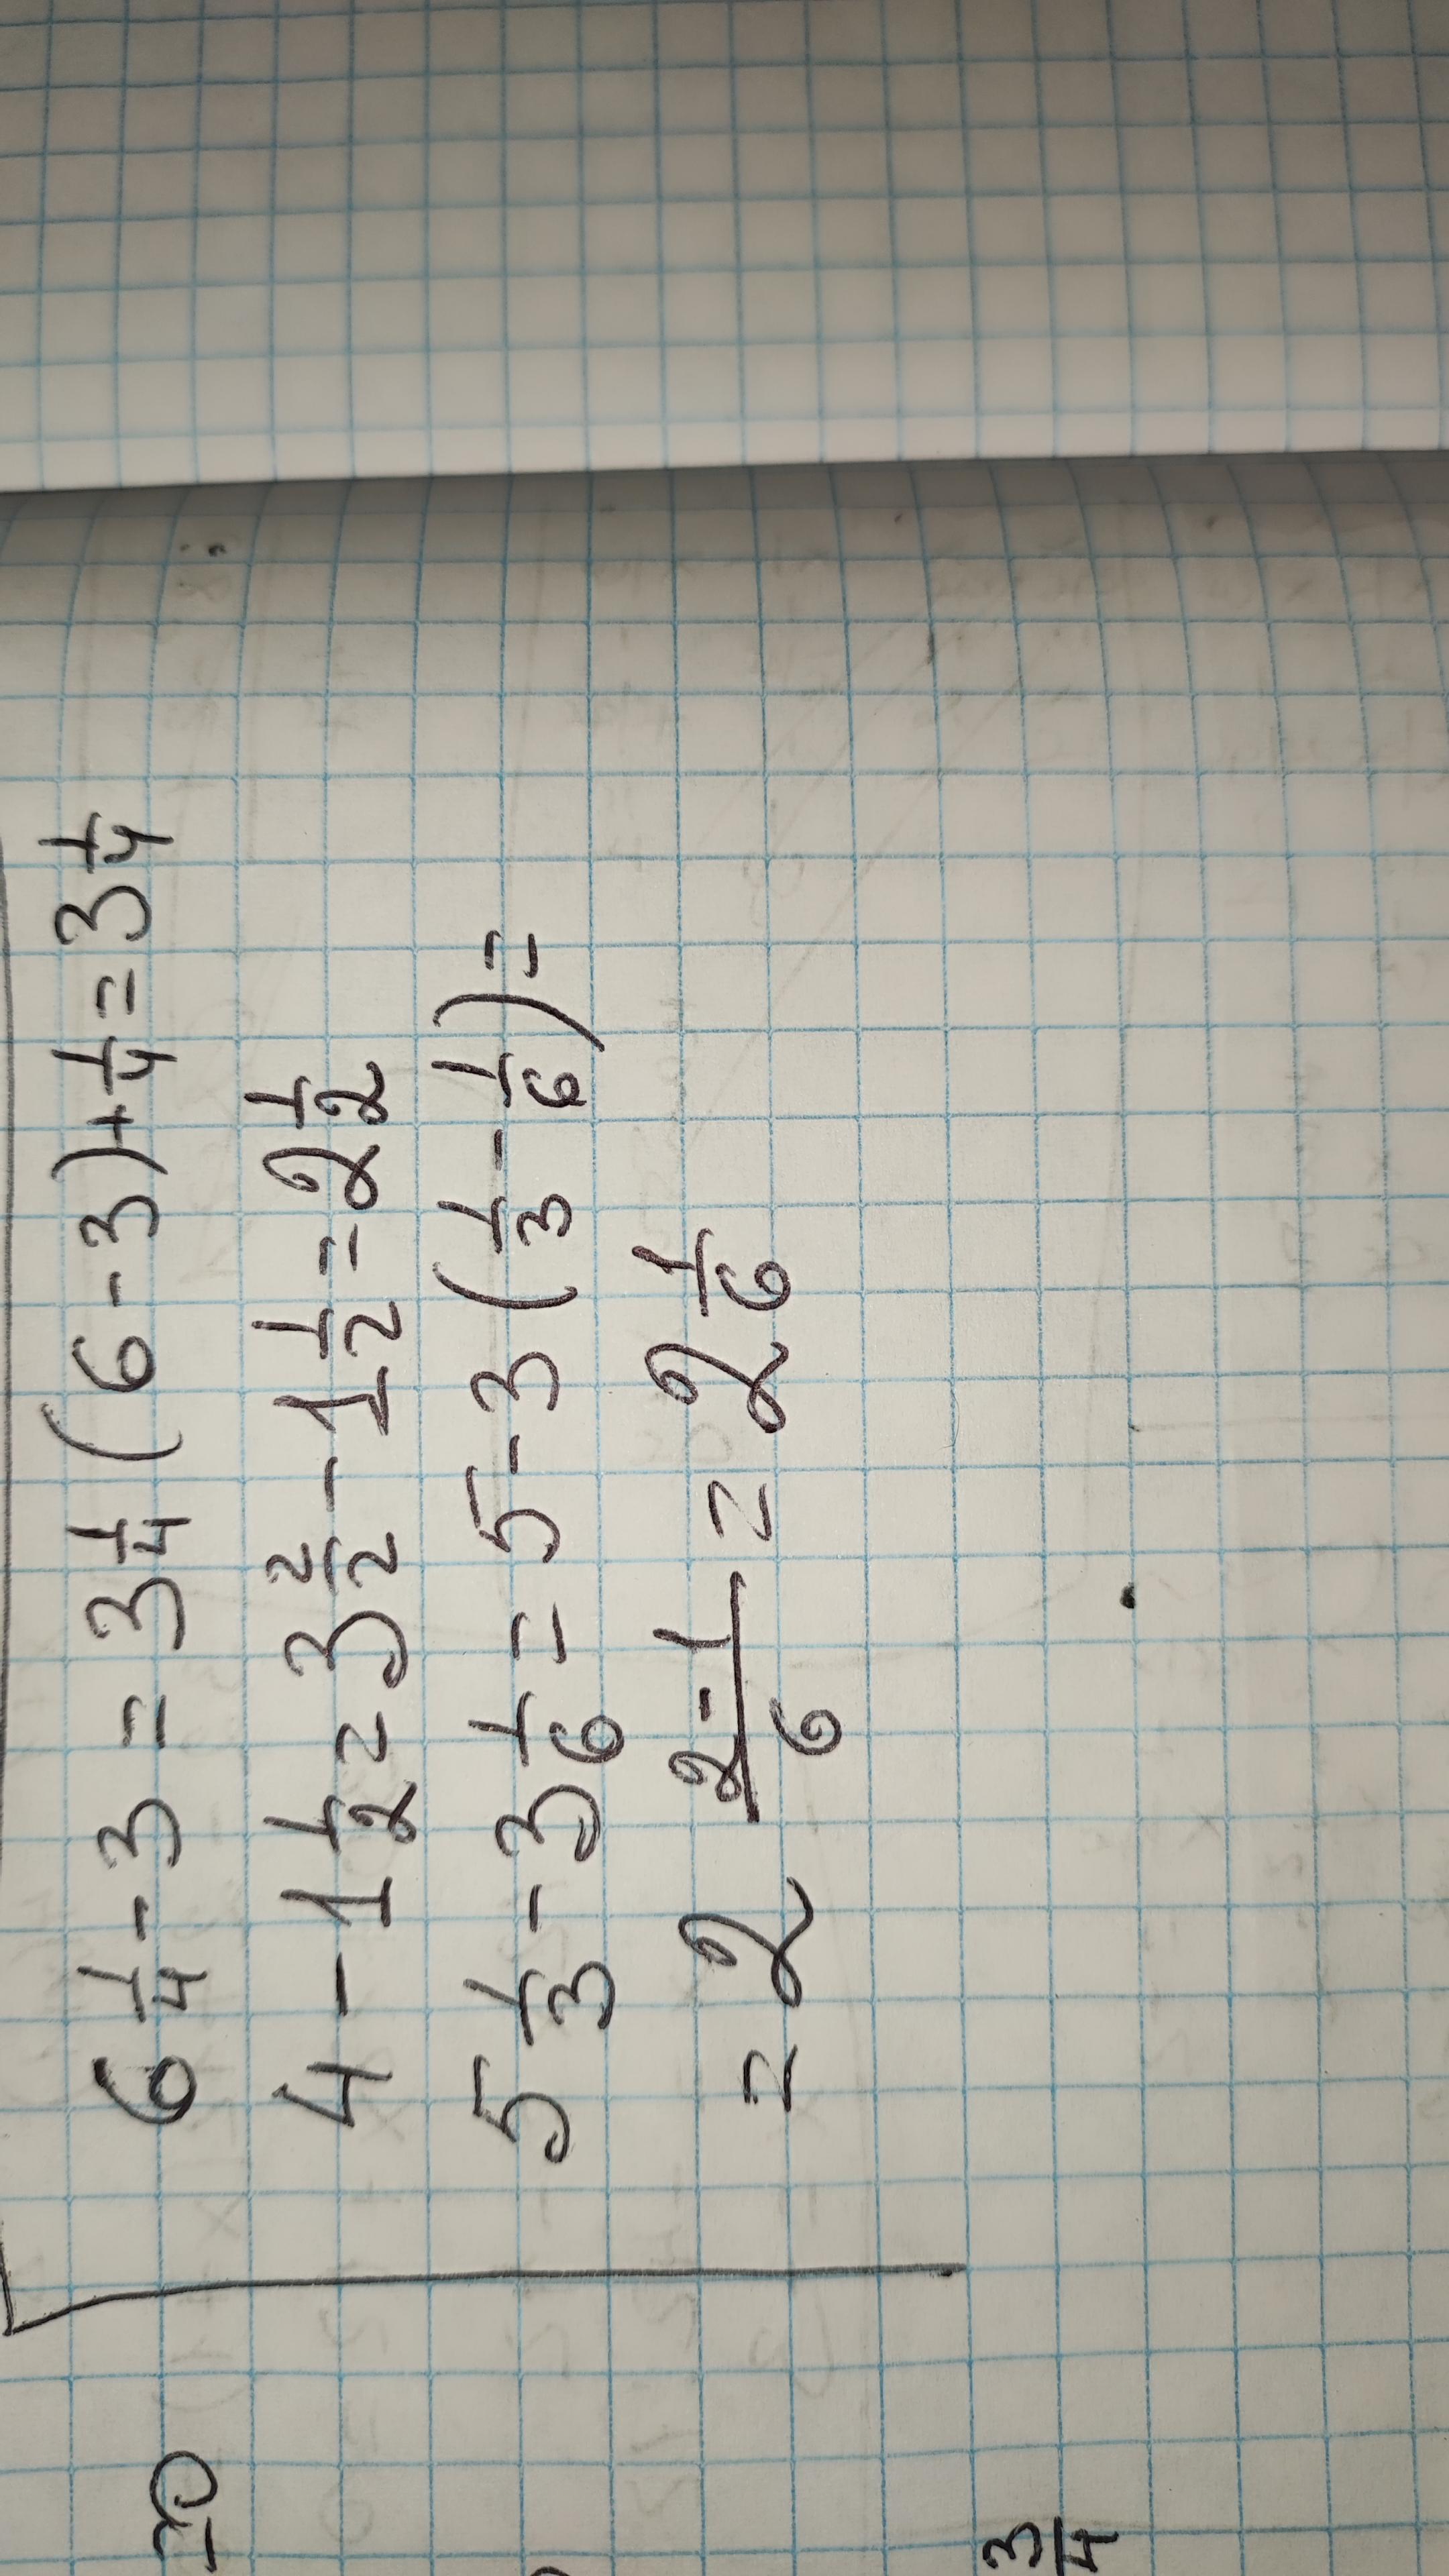 6 1/4 - 3 = 3 1/4 (6 - 3) + 1/4 = 3 1/4
4 - 1 1/2 = 3 2/2 - 1 1/2 = 2 1/2
5 1/3 - 3 1/6 = 5 - 3 (1/3 - 1/6) =
= 2 2-1/6 = 2 1/6
3/4